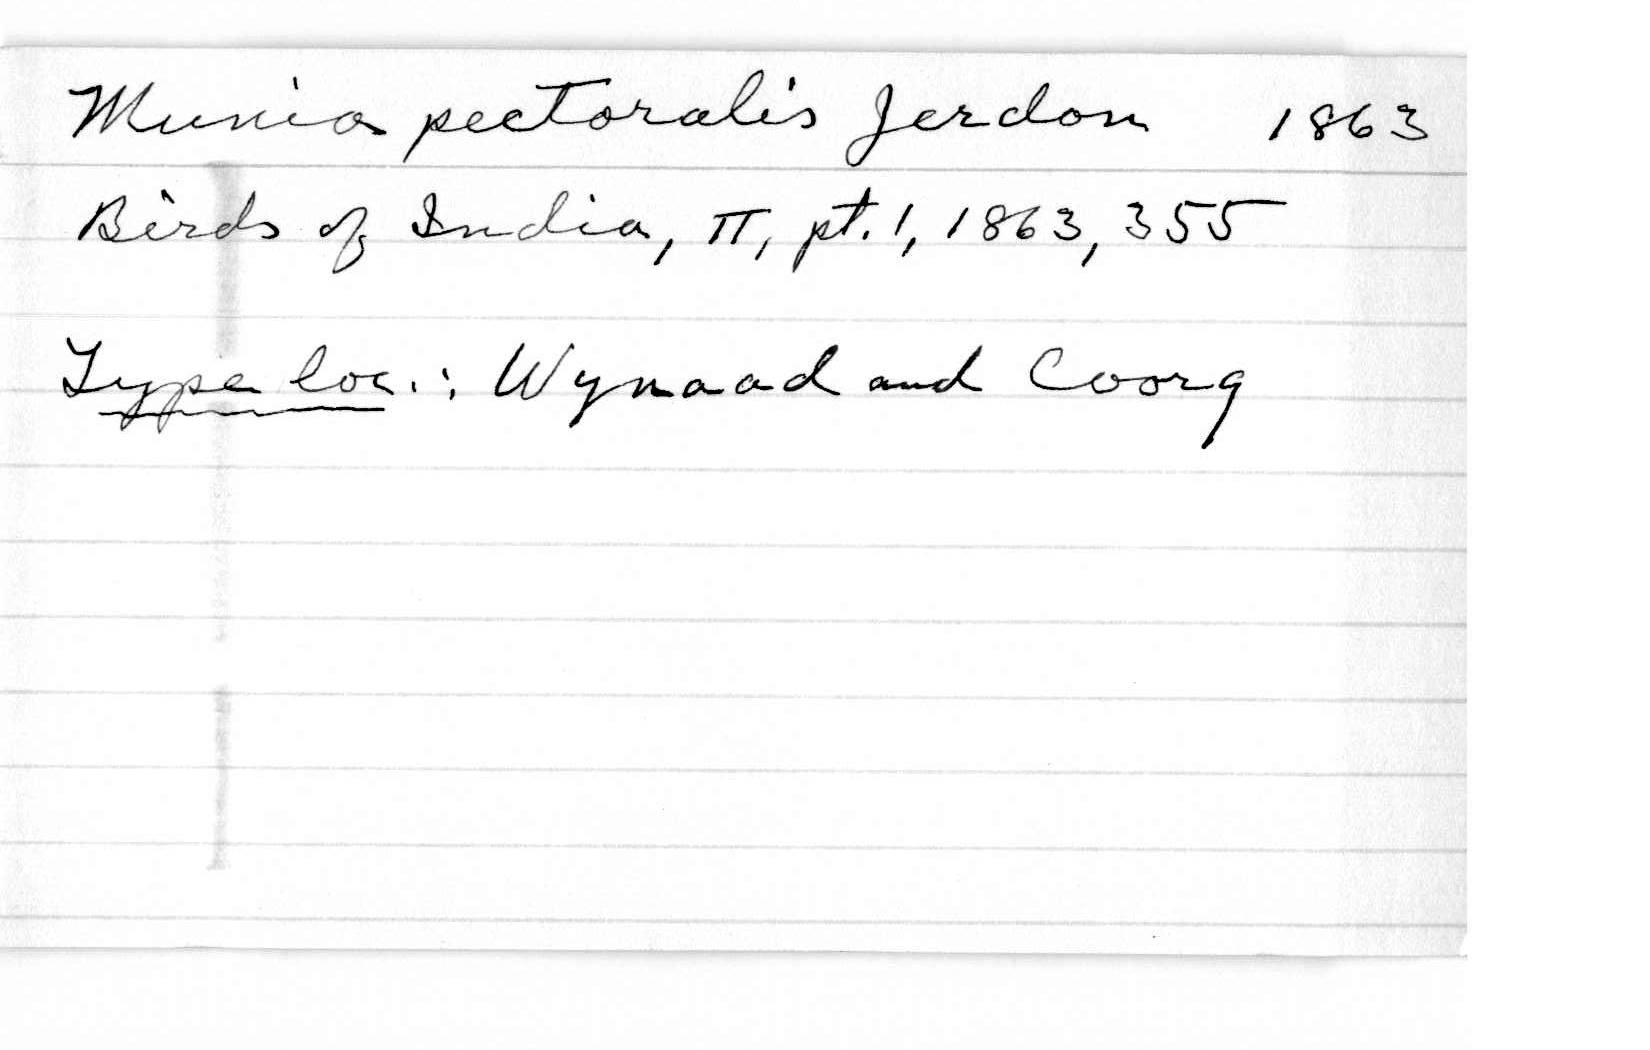 Munia pectoralis Jerdon 1863
Birds of India, II, pt. 1, 1863, 355
Type loc.: Wynaad and Coorg